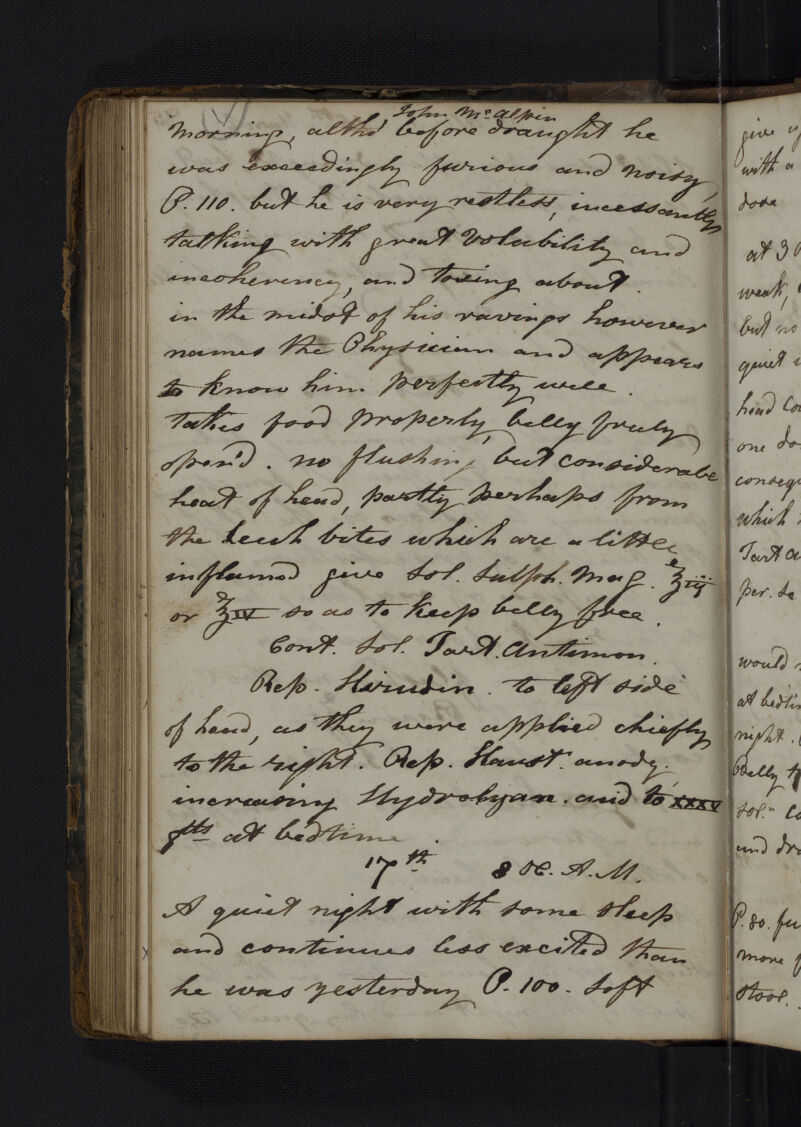 (V) John McAlpin
morning, altho' before draught he
was exceedingly furious and noisy,
P. 110. but he is very restless, incessantly
talking with great volubility and
incoherency, and tossing about.
in the midst of his ravings however
names the Physician and appears
to know him perfectly well.
takes food properly, belly freely
open'd. no flushing but considerable
heat of head, partly perhaps from
the leech bites which are a little
inflamed give Sol. Sulph. Mag. ℥iij
or ℥IV so as to keep belly free.
Cont. Sol. Tart. Antimon.
Rep. Hirudin. to left side
of head, as they were applied chiefly
to the right. Rep. Haust. anody.
increasing Hydrocyan. acid to XXXV
gtts at bedtime
17th 8 oc. A.M.
A quiet night with some sleep
and continues less excited than
he was yesterday P. 100. soft
give
with a
dose
at 3
weak,
but no
quiet
head
one
conseq
which
Tart
per.
would
at bedti
night.
Belly
sol.n
and
P. 80. fu
more
stool.